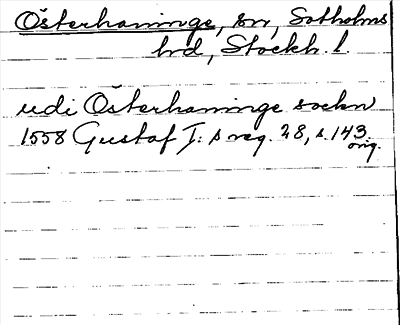 Österhaninge, sn, Sotholms
hd, Stockh. l.
udi Österhaninge sockn
1558 Gustaf I:s reg. 28, s. 143
orig.